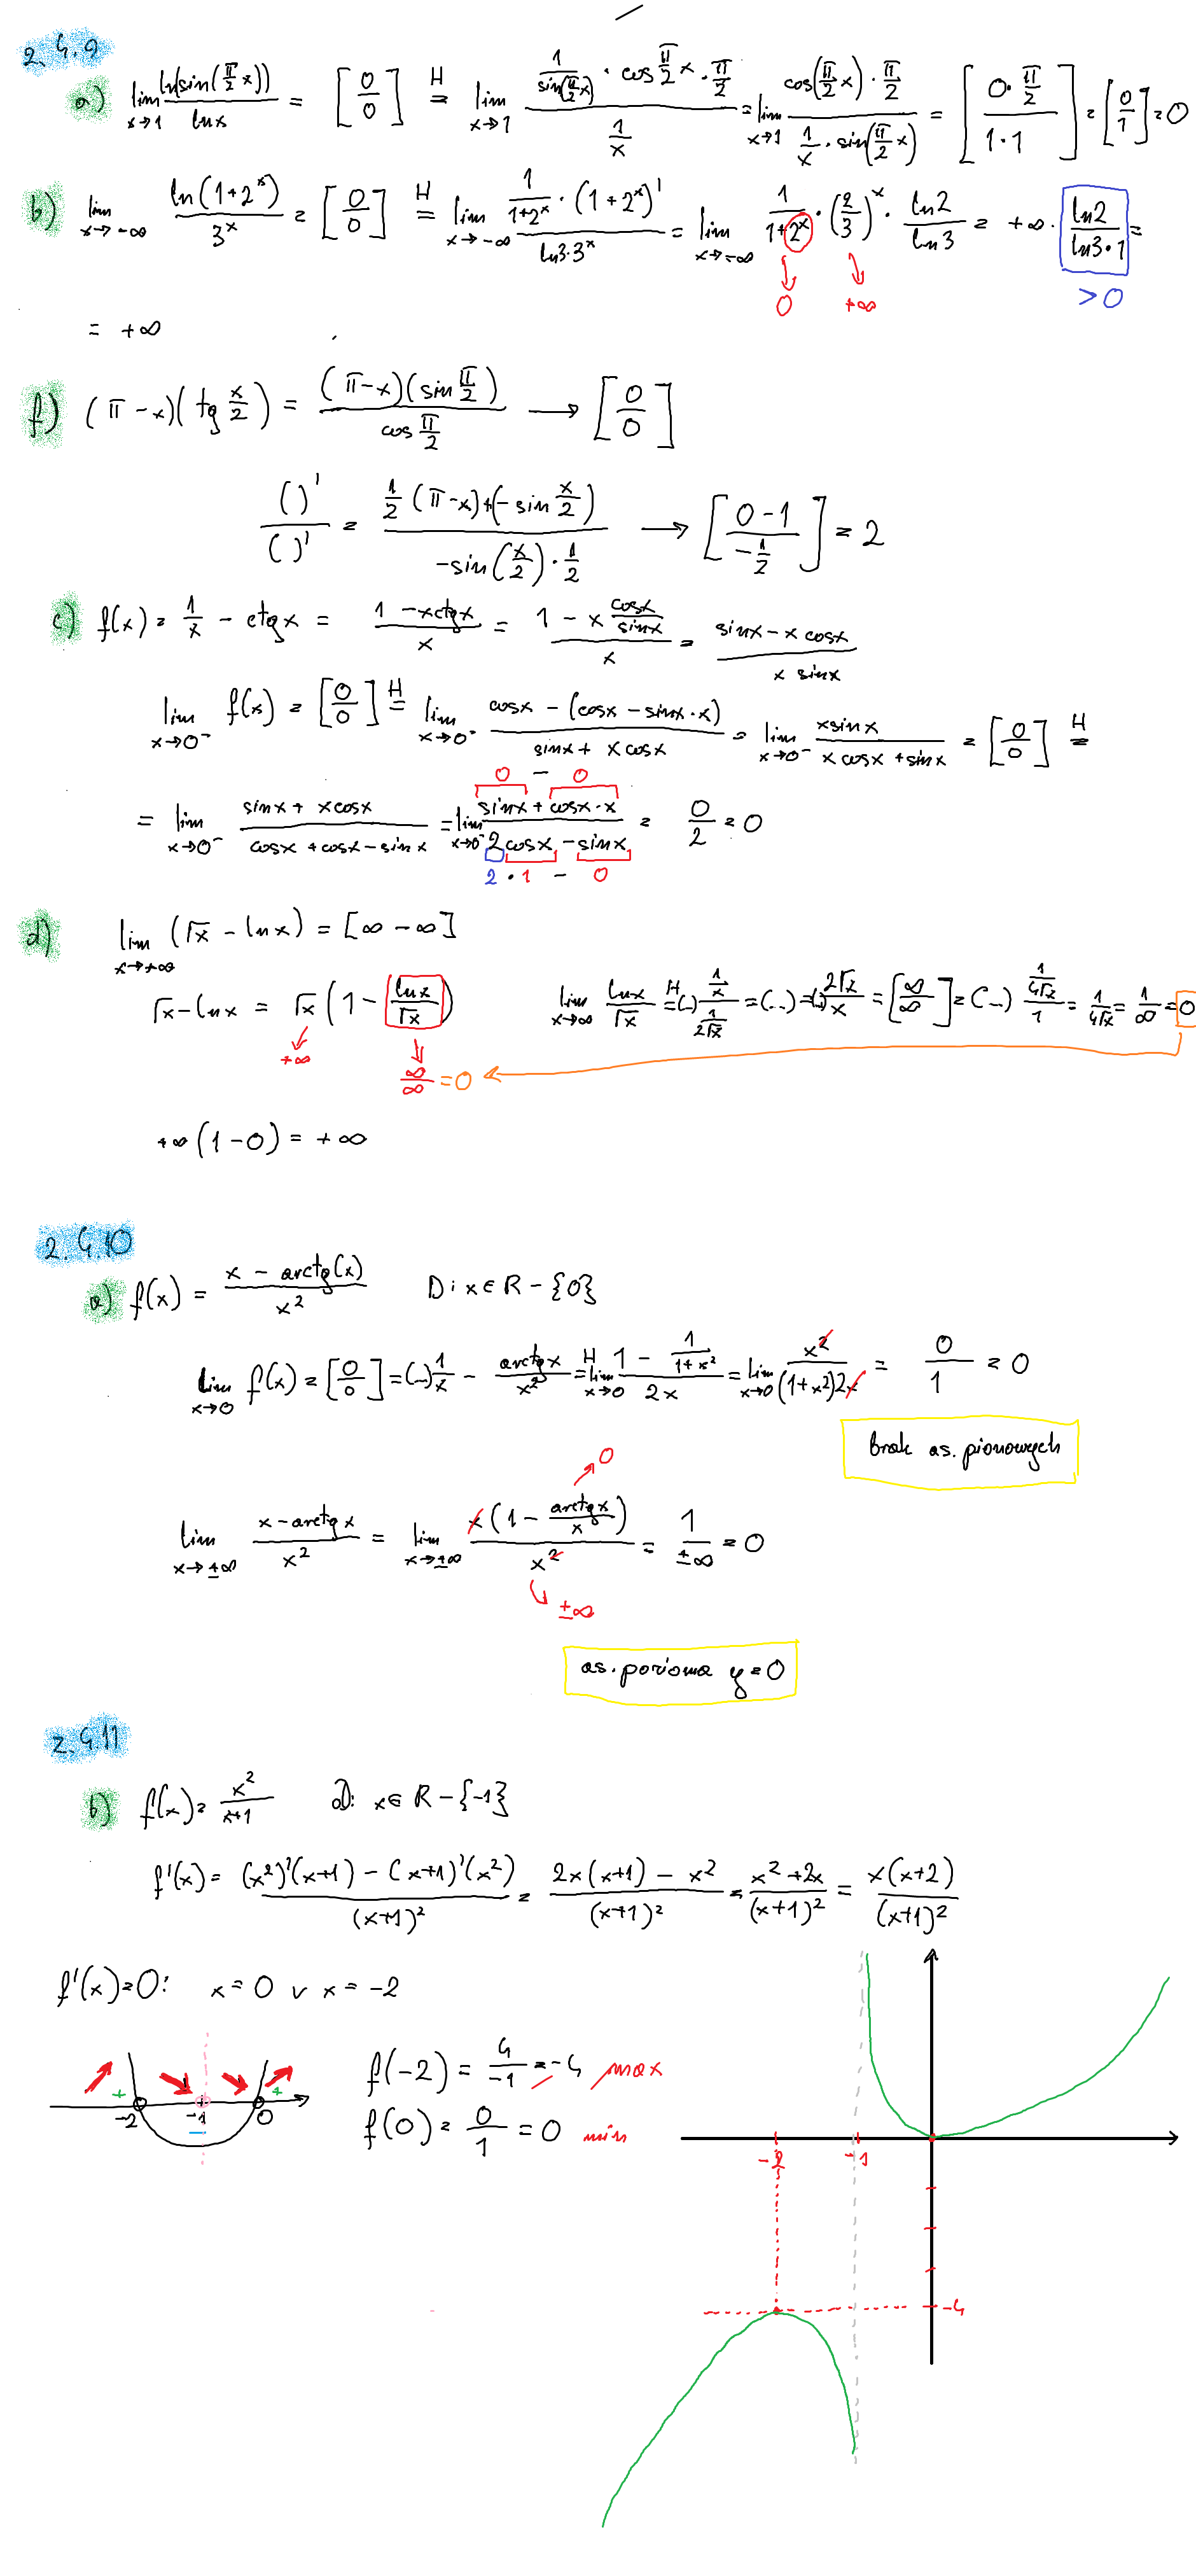 2.4.9
a) lim x→1 ln(sin(π/2 x)) / ln x = [0/0] =H lim x→1 (1/sin(π/2 x) · cos π/2 x · π/2) / (1/x) = lim x→1 (cos(π/2 x) · π/2) / (1/x · sin(π/2 x)) = [0·π/2 / 1·1] = [0/1] = 0
b) lim x→-∞ ln(1+2^x) / 3^x = [0/0] =H lim x→-∞ (1/(1+2^x) · (1+2^x)') / (ln3·3^x) = lim x→-∞ 1/(1+2^x) · (2/3)^x · ln2/ln3 = +∞ · ln2/(ln3·1) =
0 +∞ >0
= +∞
f) (π-x)(tg x/2) = (π-x)(sin π/2) / cos π/2 → [0/0]
( )' / ( )' = (1/2 (π-x)+(-sin x/2)) / (-sin(x/2)·1/2) → [0-1 / -1/2] = 2
c) f(x) = 1/x - ctgx = (1-xctgx)/x = (1 - x cosx/sinx)/x = (sinx - x cosx)/(x sinx)
lim x→0⁻ f(x) = [0/0] =H lim x→0⁻ (cosx - (cosx - sinx·x))/(sinx + x cosx) = lim x→0⁻ xsinx/(x cosx + sinx) = [0/0] =H
0 - 0
= lim x→0⁻ (sinx + xcosx)/(cosx + cosx - sinx) = lim x→0⁻ (sinx + cosx·x)/(2cosx - sinx) = 0/2 = 0
2 · 1 - 0
d) lim x→+∞ (√x - lnx) = [∞ - ∞]
√x - lnx = √x (1 - lnx/√x) lim x→∞ lnx/√x =H (..) (1/x)/(1/2√x) = (...) = (..) 2√x/x = [∞/∞] = (...) (1/4√x)/1 = 1/4√x = 1/∞ = 0
+∞ ∞/∞ = 0
+∞ (1-0) = +∞
2.4.10
a) f(x) = (x - arctg(x))/x² D: x∈R-{0}
lim x→0 f(x) = [0/0] = (...) 1/x - arctgx/x² =H lim x→0 (1 - 1/(1+x²))/2x = lim x→0 x²/((1+x²)2x) = 0/1 = 0
brak as. pionowych
0
lim x→±∞ (x-arctgx)/x² = lim x→±∞ x(1 - arctgx/x)/x² = 1/±∞ = 0
±∞
as. pozioma y=0
2.4.11
b) f(x) = x²/(x+1) D: x∈R-{-1}
f'(x) = ((x²)'(x+1) - (x+1)'(x²))/(x+1)² = (2x(x+1) - x²)/(x+1)² = (x²+2x)/(x+1)² = x(x+2)/(x+1)²
f'(x)=0: x=0 v x=-2
f(-2) = 4/-1 = -4 max
+ +
-2 -1 0
-
f(0) = 0/1 = 0 min
-2 -1
-4